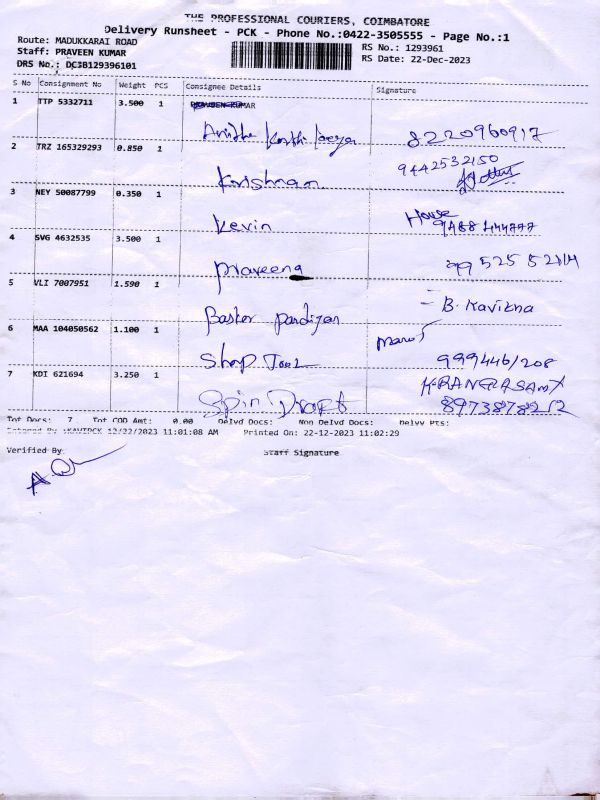 THE PROFESSIONAL COURIERS, COIMBATORE
Delivery Runsheet - PCK - Phone No.:0422-3505555 - Page No.:1
Route: MADUKKARAI ROAD
RS No.: 1293961
Staff: PRAVEEN KUMAR
RS Date: 22-Dec-2023
DRS No.: DCSB129396101
S No Consignment No Weight PCS Consignee Details Signature
1 TTP 5332711 3.500 1 PRAVEEN KUMAR
8220960917
2 TRZ 165329293 0.850 1
9442532150
Krishnan
3 NEY 50087799 0.350 1
House
Kevin
4 SVG 4632535 3.500 1
Praveena
5 VLI 7007951 1.590 1
B. Kavitha
Basker Pandiyan
6 MAA 104050562 1.100 1
Shop Joel 999446/208
7 KDI 621694 3.250 1
Spin Draft 8973878212
Tot Docs: 7 Tot COD Amt: 0.00 Delvd Docs: Non Delvd Docs: Delvy Pts:
Entered By :KAVIPCK 12/22/2023 11:01:08 AM Printed On: 22-12-2023 11:02:29
Verified By
Staff Signature